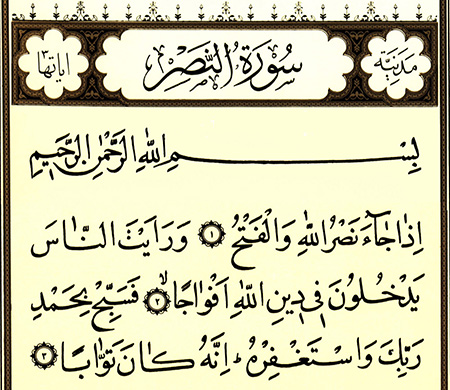 مدنية سورة النصر اياتها ٣
بِسْمِ اللهِ الرَّحْمٰنِ الرَّحِيمِ
اِذَا جَٓاءَ نَصْرُ اللهِ وَالْفَتْحُ ﴿١﴾ وَرَاَيْتَ النَّاسَ
يَدْخُلُونَ فِي دِينِ اللهِ اَفْوَاجًاۙ ﴿٢﴾ فَسَبِّحْ بِحَمْدِ
رَبِّكَ وَاسْتَغْفِرْهُۜ اِنَّهُ كَانَ تَوَّابًا ﴿٣﴾